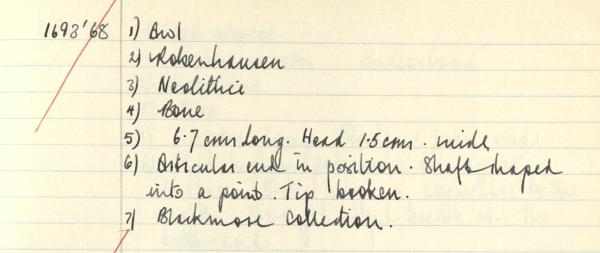 1693'68 1) Awl
2) Robenhausen
3) Neolithic
4) Bone
5) 6.7 cms long. Head 1.5 cms. wide
6) Articular end in position. Shaft shaped
into a point. Tip broken.
7) Blackmore Collection.